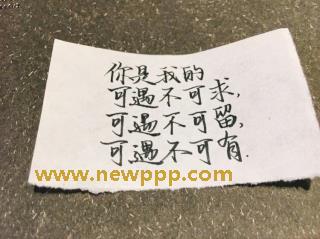 你是我的
可遇不可求,
可遇不可留,
可遇不可有.
www.newppp.com